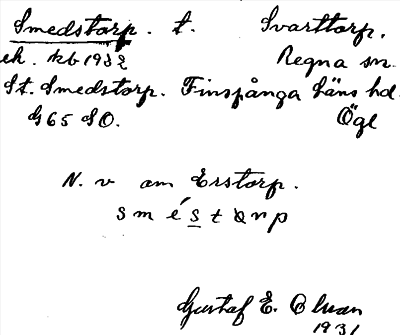 Smedstorp. t. Svarttorp.
ek. kb 1932 Regna sn.
St. Smedstorp. Finspånga läns hd.
G 65 SO. Ögl
N. v om Erstorp.
s m é s t ɒ r p
Gustaf E. Olsson
1931